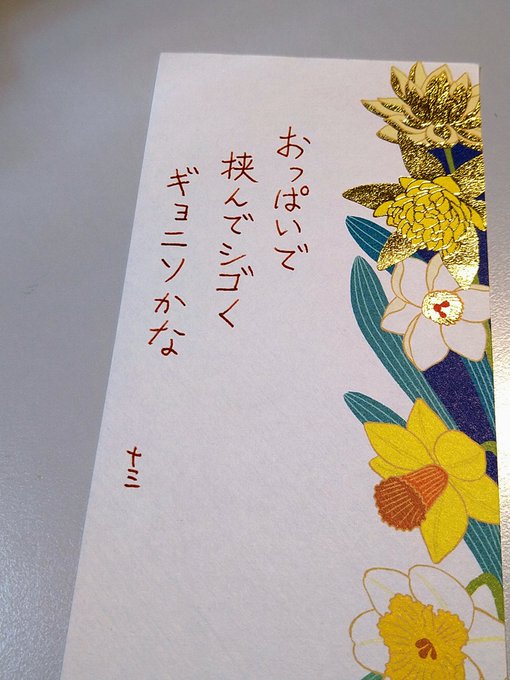 おっぱいで
挟んでシゴく
ギョニソかな
十三